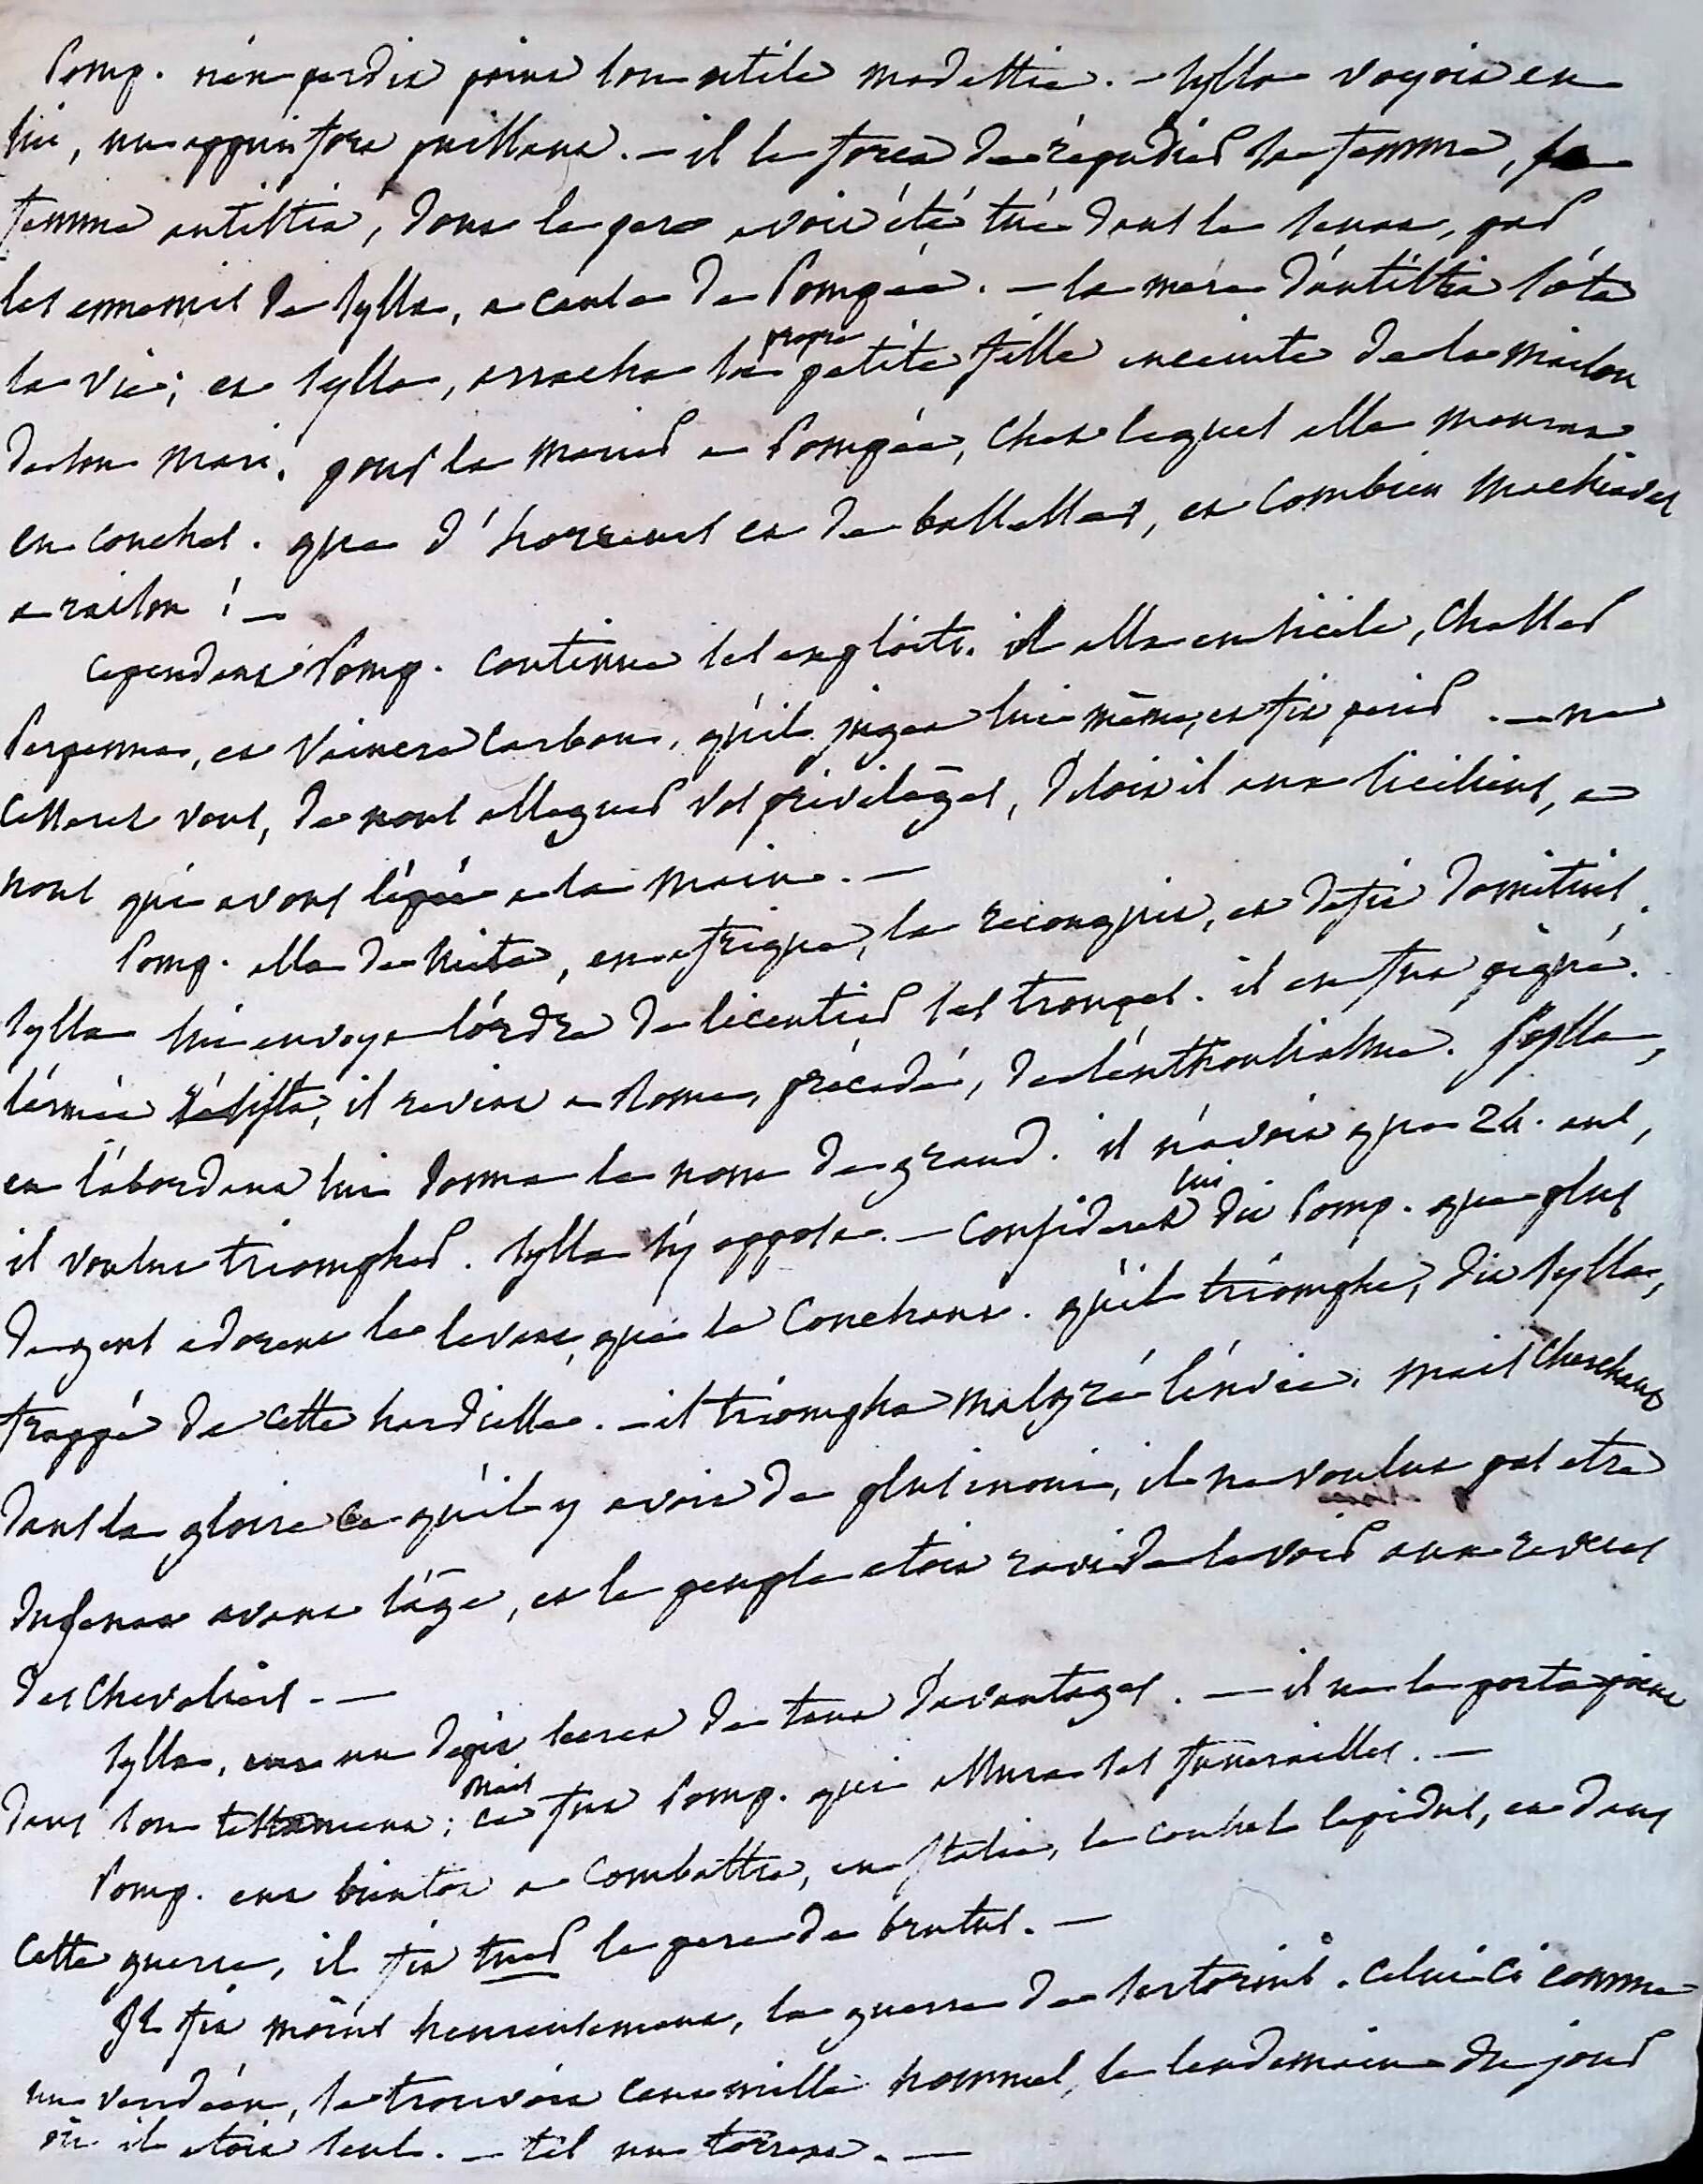 Pomp. n'en perdit point son utile modestie. — Sylla voyoit en
lui, un appui fort puissant. — il le força de répudier sa femme, sa
femme antistia, dont le pere avoit été tué dans le senat, par
les ennemis de Sylla, a cause de Pompée. — la mere d'antistia s'ota
la vie; et Sylla, arracha sa propre petite fille enceinte de la maison
de son mari. pour la marier a Pompée, chez lequel elle mourut
en couches. que d'horreurs et de bassesses, et combien Machiavel
a raison ! —
Cependant Pomp. continua ses exploits. il alla en Sicile, chasser
Perpenna, et vaincre Carbon, qu'il jugea lui même, et fit perir. — ne
cesserez vous, de nous alleguer vos privilèges, disoit il aux Siciliens, a
nous qui avons l'épée a la main. —
Pomp. alla de suite, en afrique, la reconquit, et defit Domitius.
Sylla lui envoya l'ordre de licentier ses troupes. il en fut piqué.
l'armée résista, il revint a Rome, précédé, de l'enthousiasme. Sylla,
en l'abordant lui donna le nom de grand. il n'avoit que 24. ans,
il voulut triompher. Sylla s'y opposa. — Considerez lui dit Pomp. que plus
de gens adorent le levant, que le couchant. qu'il triomphe, dit Sylla,
frappé de cette hardiesse. — il triompha malgré l'envie. mais cherchant
dans la gloire ce qu'il y avoit de plus inoui, il ne voulut pas etre
du senat avant l'âge, et le peuple etoit ravi de le voir aux revues
des chevaliers. —
Sylla, eut un dépit secret de tant d'avantages. — il ne le porta point
dans son testament; mais ce fut Pomp. qui assura ses funerailles. —
Pomp. eut bientot a combattre, en Italie, le consul lepidus, et dans
cette guerre, il fit tuer le pere de brutus. —
Il fit moins heureusement, la guerre de Sertorius. Celui-ci comme
un vendéen, se trouvoit cent mille hommes, le lendemain du jour
où il etoit seul. — tel un torrent. —